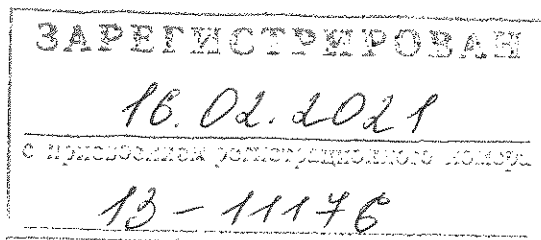 ЗАРЕГИСТРИРОВАН
16.02.2021
с присвоением регистрационного номера
13-11176